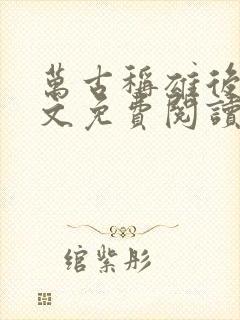 萬古稱雄後
文免費閱讀
綰紫彤